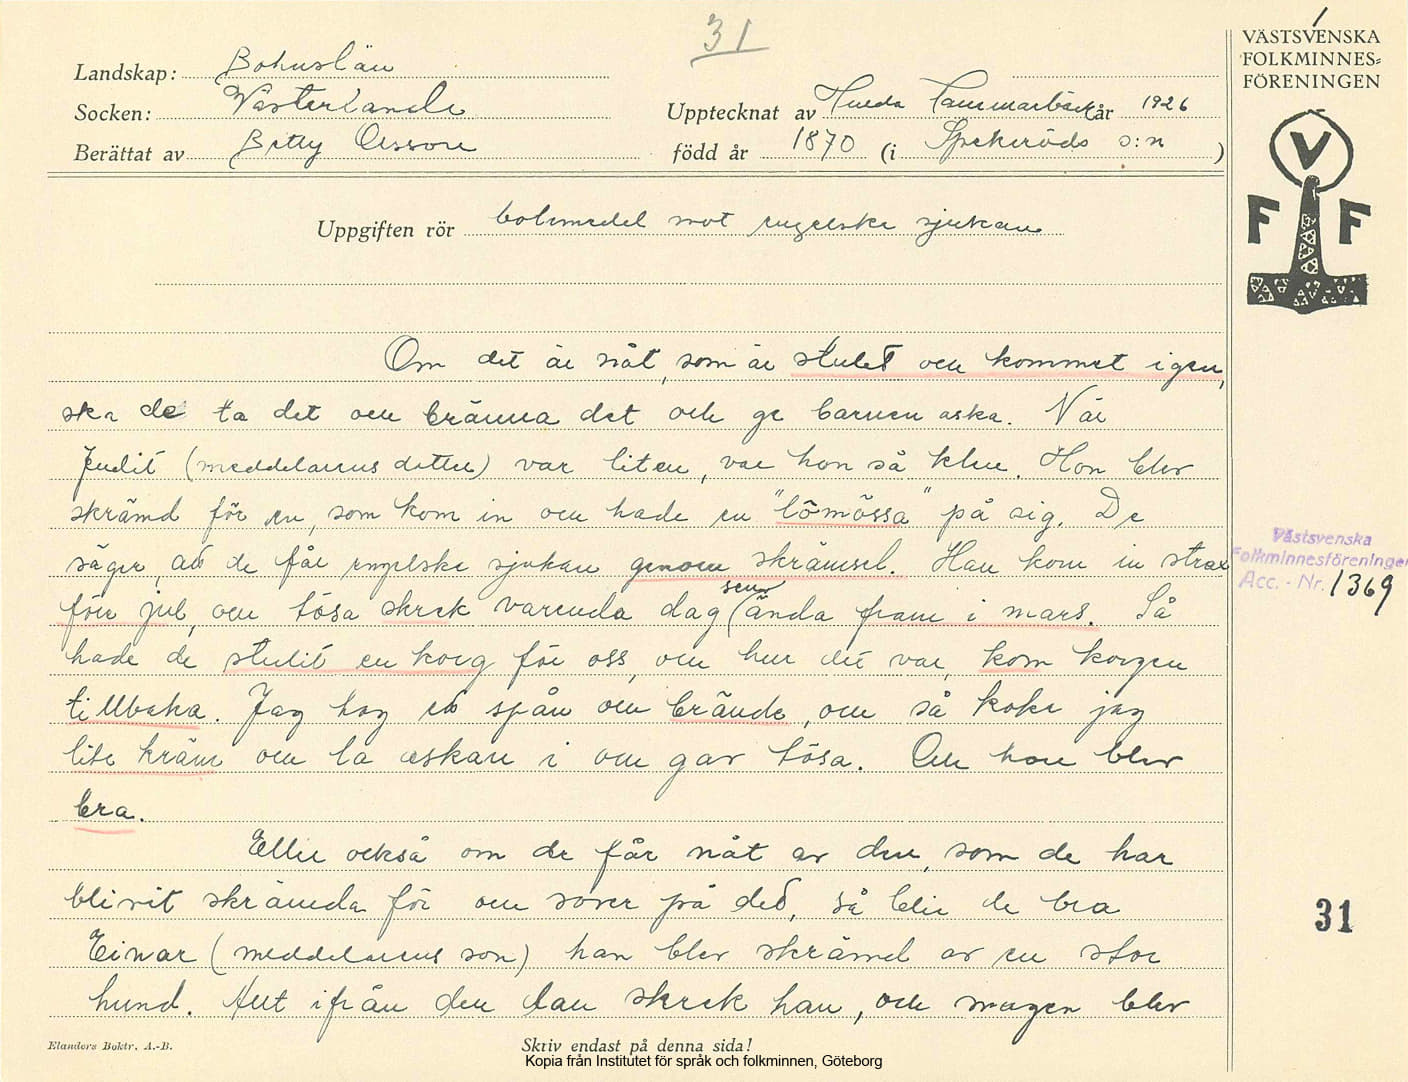 31
VÄSTSVENSKA
FOLKMINNES=
FÖRENINGEN
V
F F
Landskap: Bohuslän
Socken: Västerlanda
Upptecknat av Hulda Hammarbäck år 1926
Berättat av Betty Olsson
född år 1870 (i Spekeröds s:n )
Uppgiften rör botemedel mot engelska sjukan
Om det är nåt, som är stulet och kommet igen,
ska de ta det och bränna det och ge barnen aska. När
Judit (meddelarens dotter) var liten, var hon så klen. Hon blev
skrämd för en, som kom in och hade en "lömössa" på sig. De
säger, att de får engelska sjukan genom skrämsel. Han kom in strax
före jul, och tösa skrek varenda dag (sen) ända fram i mars. Så
hade de stulit en korg för oss, och hur det var, kom korgen
tillbaka. Jag tog ett spån och brände, och så koka jag
lite kräm och la askan i och gav tösa. Och hon blev
bra.
Eller också om de får nåt av den, som de har
blivit skrämda för och sover på det, så blir de bra
Einar (meddelarens son) han blev skrämd av en stor
hund. Allt ifrån den dan skrek han, och magen blev
Västsvenska
Folkminnesföreningen
Acc. - Nr. 1369
31
Elanders Boktr. A.-B.
Skriv endast på denna sida!
Kopia från Institutet för språk och folkminnen, Göteborg